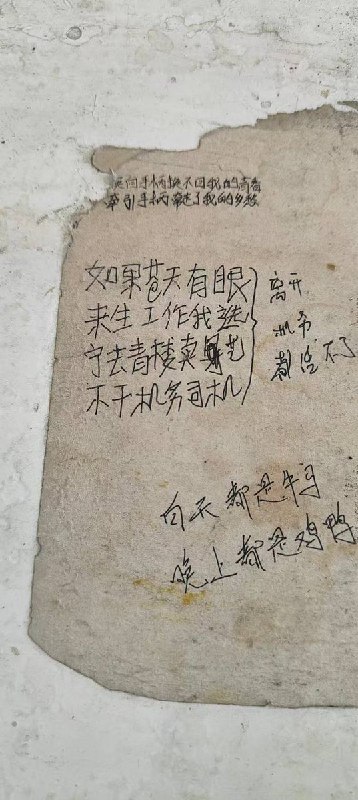 换向手柄换不回我的青春
牵引手柄牵走了我的乡愁
如果苍天有眼
来生工作我选
宁去青楼卖艺
不干机务司机
离开
机务
都活不了
白天都是牛马
晚上都是鸡鸭